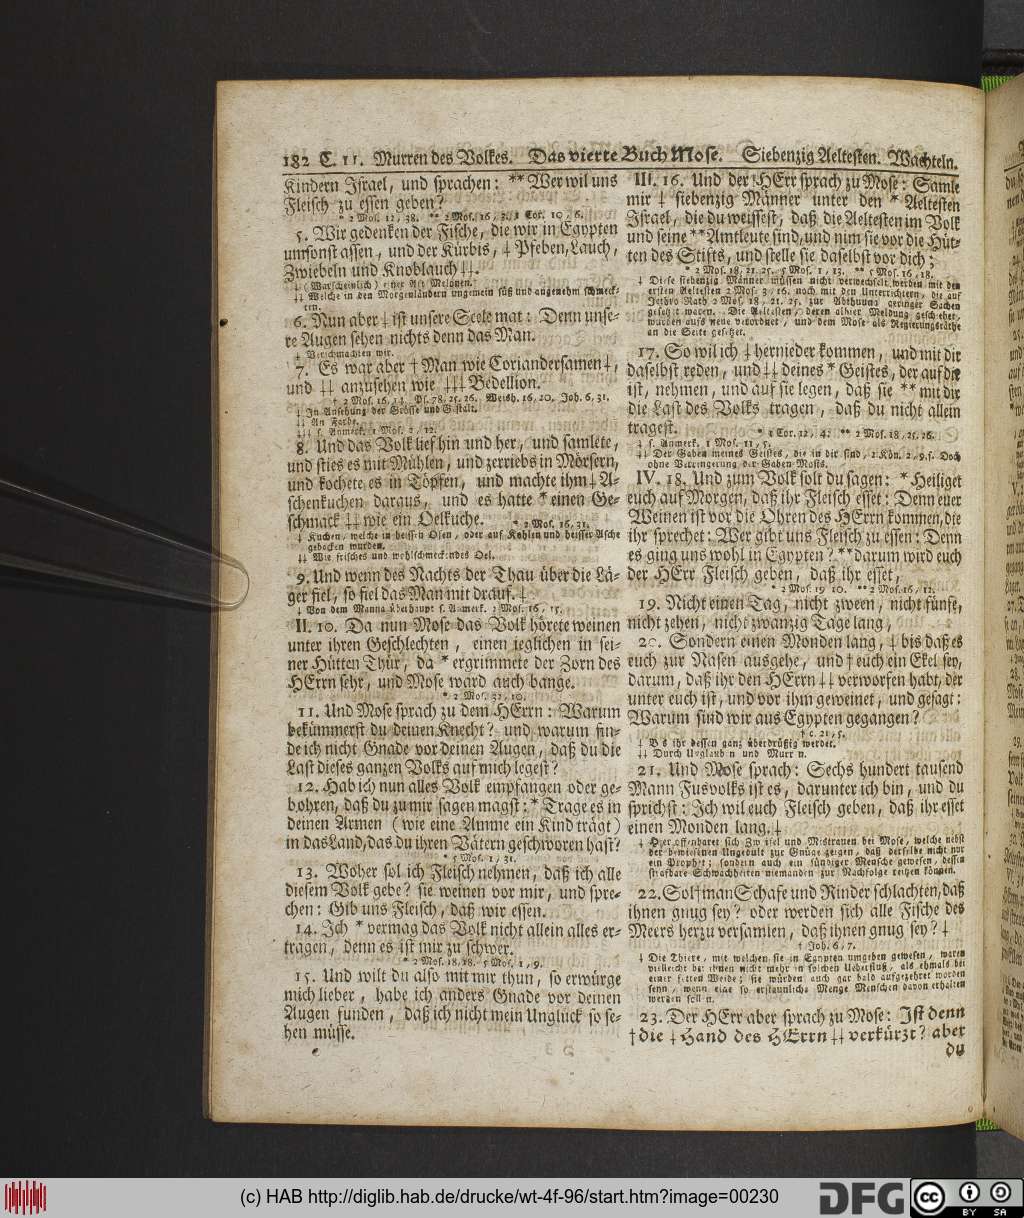 182 C. 11. Murren des Volkes. Das vierte Buch Mose. Siebenzig Aeltesten. Wachteln.
Kindern Israel, und sprachen: ** Wer wil uns
Fleisch zu essen geben?
* 2 Mos. 12, 38. ** 2 Mos. 16, 3. 1 Cor. 10, 6.
5. Wir gedenken der Fische, die wir in Egypten
umsonst assen, und der Kürbis, ‡ Pfeben, Lauch,
Zwiebeln und Knoblauch ‡‡.
‡ (Warscheinlich) einer Art Melonen.
‡‡ Welche in den Morgenländern ungemein süß und angenehm schmeck-
ten.
6. Nun aber ‡ ist unsere Seele mat: Denn unse-
re Augen sehen nichts denn das Man.
‡ Verschmachten wir.
7. Es war aber † Man wie Coriandersamen ‡,
und ‡‡ anzusehen wie ‡‡‡ Bedellion.
† 2 Mos. 16, 14. Ps. 78, 25. 26. Weish. 16, 20. Joh. 6, 31.
‡ In Ansehung der Grösse und Gestalt.
‡‡ An Farbe.
‡‡‡ s. Anmerk. 1 Mos. 2, 12.
8. Und das Volk lief hin und her, und samlete,
und sties es mit Mühlen, und zerriebs in Mörsern,
und kochete es in Töpfen, und machte ihm ‡ A-
schenkuchen daraus, und es hatte * einen Ge-
schmack ‡‡ wie ein Oelkuche.
* 2 Mos. 16, 31.
‡ Kuchen, welche in heissen Ofen, oder auf Kohlen und heisser Asche
gebacken wurden.
‡‡ Wie frisches und wohlschmeckendes Oel.
9. Und wenn des Nachts der Thau über die Lä-
ger fiel, so fiel das Man mit drauf. ‡
‡ Von dem Manna überhaupt s. Anmerk. 2 Mos. 16, 15.
II. 10. Da nun Mose das Volk hörete weinen
unter ihren Geschlechten, einen ieglichen in sei-
ner Hütten Thür, da * ergrimmete der Zorn des
HErrn sehr, und Mose ward auch bange.
* 2 Mos. 32, 10.
11. Und Mose sprach zu dem HErrn: Warum
bekümmerst du deinen Knecht? und warum fin-
de ich nicht Gnade vor deinen Augen, daß du die
Last dieses ganzen Volks auf mich legest?
12. Hab ich nun alles Volk empfangen oder ge-
bohren, daß du zu mir sagen magst: * Trage es in
deinen Armen (wie eine Amme ein Kind trägt)
in das Land, das du ihren Vätern geschworen hast?
* 5 Mos. 1, 31.
13. Woher sol ich Fleisch nehmen, daß ich alle
diesem Volk gebe? sie weinen vor mir, und spre-
chen: Gib uns Fleisch, daß wir essen.
14. Ich * vermag das Volk nicht allein alles er-
tragen, denn es ist mir zu schwer.
* 2 Mos. 18, 18. 5 Mos. 1, 9.
15. Und wilt du also mit mir thun, so erwürge
mich lieber, habe ich anders Gnade vor deinen
Augen funden, daß ich nicht mein Unglück so se-
hen müsse.
III. 16. Und der HErr sprach zu Mose: Samle
mir ‡ siebenzig Männer unter den * Aeltesten
Israel, die du weissest, daß die Aeltesten im Volk
und seine ** Amtleute sind, und nim sie vor die Hüt-
ten des Stifts, und stelle sie daselbst vor dich;
* 2 Mos. 18, 21. 25. 5 Mos. 1, 13. ** 5 Mos. 16, 18.
‡ Diese siebenzig Männer müssen nicht verwechselt werden mit den
ersten Aeltesten 2 Mos. 3, 16. noch mit den Unterrichtern, die auf
Jethro Rath 2 Mos. 18, 21. 25. zur Abthuung geringer Sachen
gesetzt waren. Die Aeltesten, deren alhier Meldung geschiehet,
wurden aufs neue verordnet, und dem Mose als Regierungsräthe
an die Seite gesetzet.
17. So wil ich ‡ hernieder kommen, und mit dir
daselbst reden, und ‡‡ deines * Geistes, der auf dir
ist, nehmen, und auf sie legen, daß sie ** mit dir
die Last des Volks tragen, daß du nicht allein
tragest.
* 1 Cor. 12, 4. ** 2 Mos. 18, 25. 26.
‡ s. Anmerk. 1 Mos. 11, 5.
‡‡ Der Gaben meines Geistes, die in dir sind, 2 Kön. 2, 9. s. Doch
ohne Verringerung der Gaben Mosis.
IV. 18. Und zum Volk solt du sagen: * Heiliget
euch auf Morgen, daß ihr Fleisch esset: Denn euer
Weinen ist vor die Ohren des HErrn kommen, die
ihr sprechet: Wer gibt uns Fleisch zu essen: Denn
es ging uns wohl in Egypten? ** darum wird euch
der HErr Fleisch geben, daß ihr esset,
* 2 Mos. 19, 10. ** 2 Mos. 16, 12.
19. Nicht einen Tag, nicht zween, nicht fünfe,
nicht zehen, nicht zwanzig Tage lang,
20. Sondern einen Monden lang, ‡ bis daß es
euch zur Nasen ausgehe, und † euch ein Ekel sey,
darum, daß ihr den HErrn ‡‡ verworfen habt, der
unter euch ist, und vor ihm geweinet, und gesagt:
Warum sind wir aus Egypten gegangen?
† c. 21, 5.
‡ Bis ihr dessen ganz überdrüßig werdet.
‡‡ Durch Unglauben und Murren.
21. Und Mose sprach: Sechs hundert tausend
Mann Fusvolks ist es, darunter ich bin, und du
sprichst: Ich wil euch Fleisch geben, daß ihr esset
einen Monden lang. ‡
‡ Hier offenbaret sich Zweifel und Mistrauen bei Mose, welche nebst
der bewiesenen Ungedult zur Gnüge zeigen, daß derselbe nicht nur
ein Prophet; sondern auch ein sündiger Mensche gewesen, dessen
strafbare Schwachheiten niemanden zur Nachfolge reitzen können.
22. Sol † man Schafe und Rinder schlachten, daß
ihnen gnug sey? oder werden sich alle Fische des
Meers herzu versamlen, daß ihnen gnug sey? ‡
† Joh. 6, 7.
‡ Die Thiere, mit welchen sie in Egypten umgeben gewesen, waren
vielleicht bei ihnen nicht mehr in solchem Ueberfluß, als ehmals bei
einer fetten Weide; sie würden auch gar bald aufgezehret worden
seyn, wenn eine so erstaunliche Menge Menschen davon erhalten
werden sollen.
23. Der HErr aber sprach zu Mose: Ist denn
† die ‡ Hand des HErrn ‡‡ verkürzt? aber
du
(c) HAB http://diglib.hab.de/drucke/wt-4f-96/start.htm?image=00230
DFG
cc
BY SA